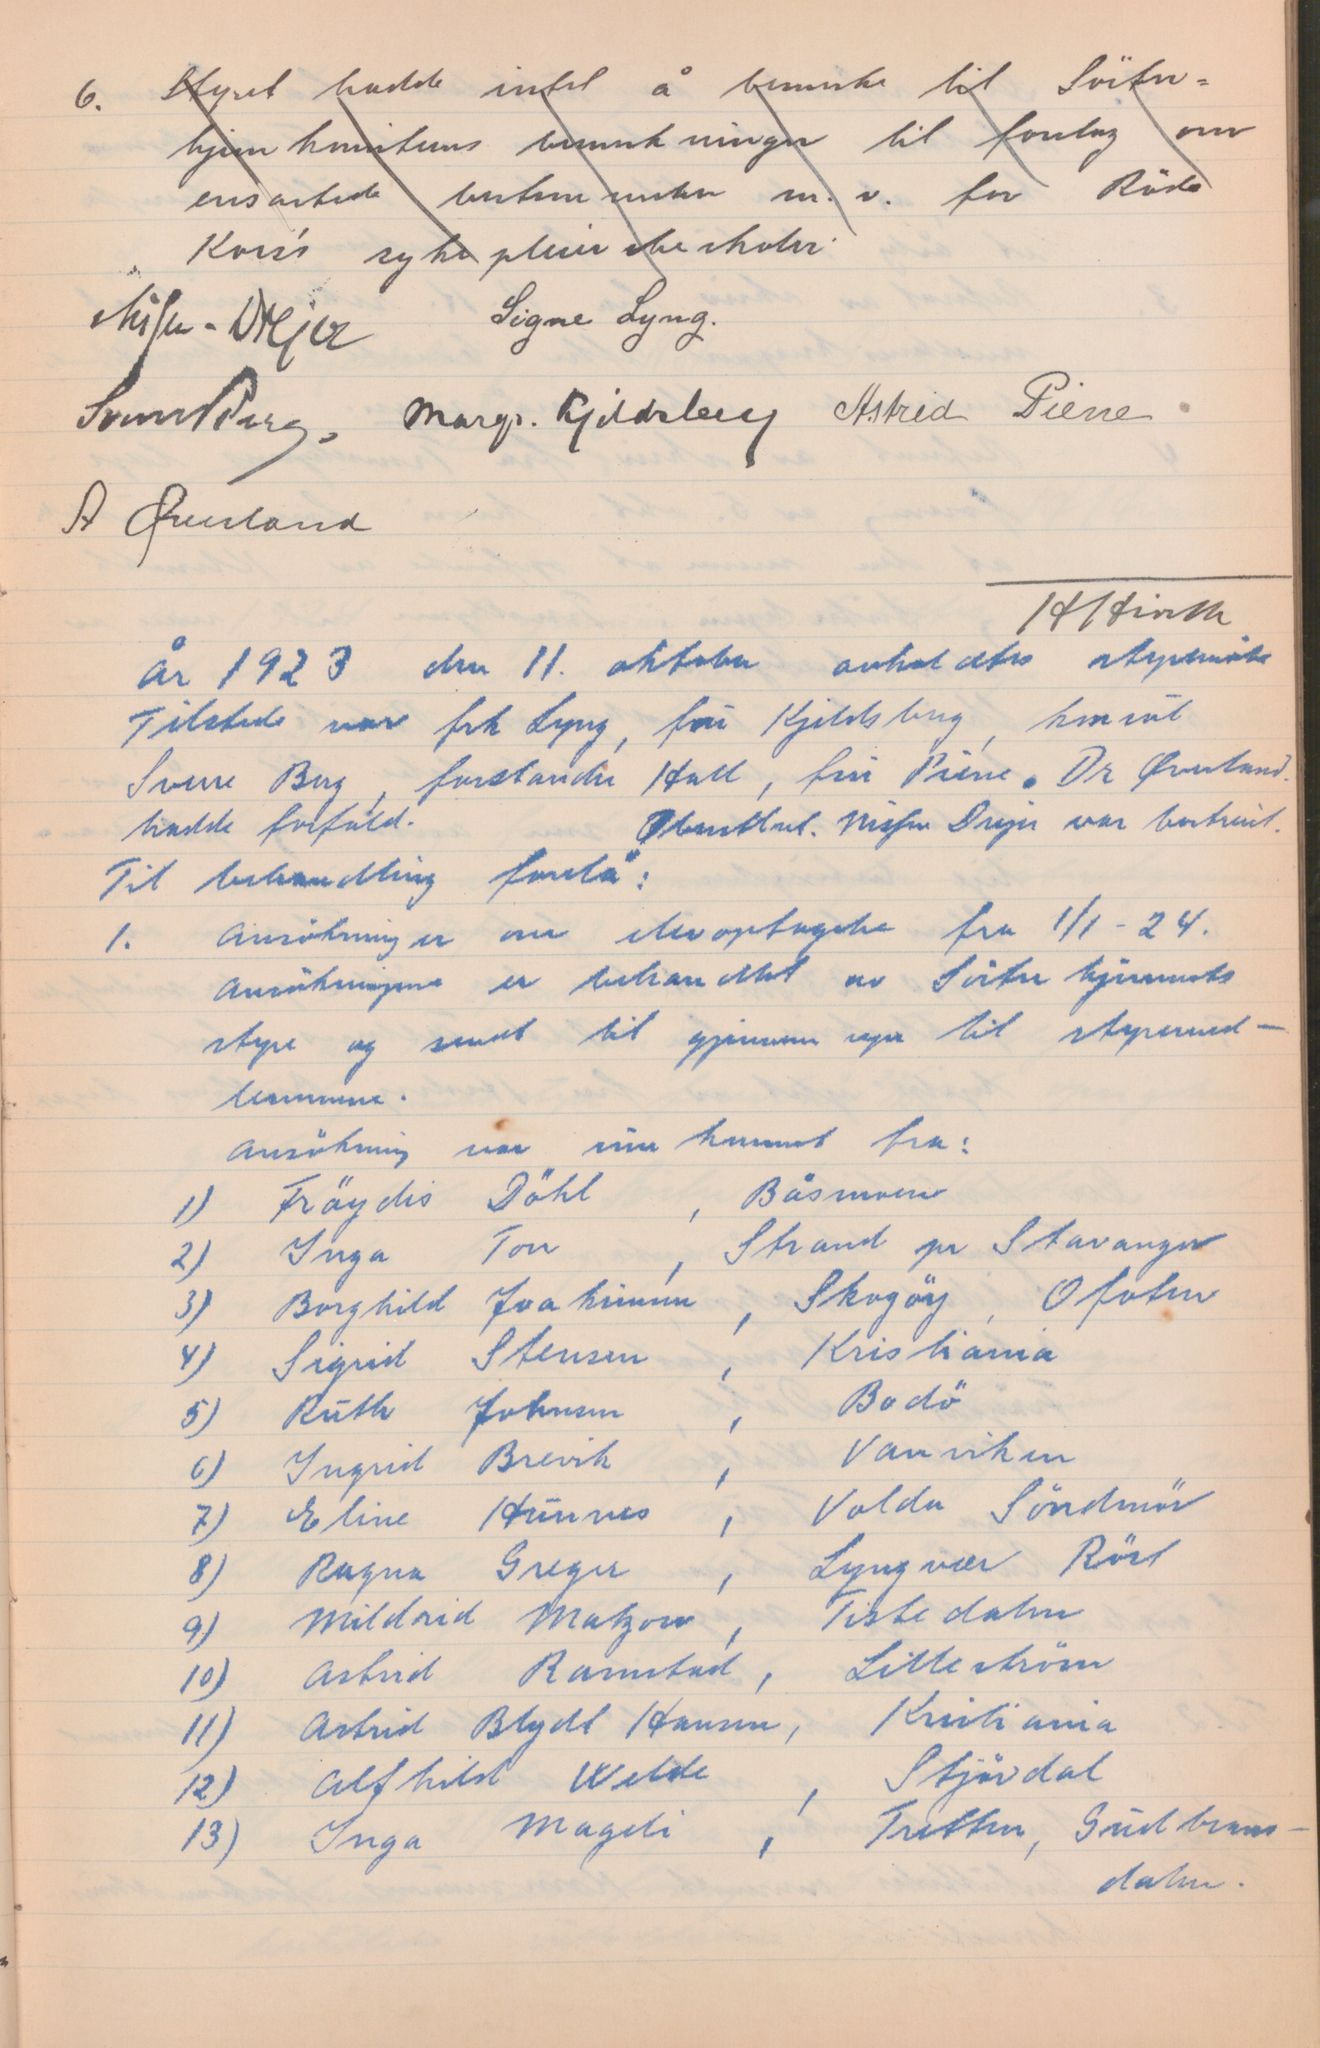 6. Styret hadde intet å bemerke til Söster=
hjemkomiteens bemerkninger til forslag om
ensartede bestemmelser m. v. for Röde
Kors's sykepleierskeskoler.
Nissen-Drejer Signe Lyng.
Sverre Berg. Margr. Kjeldsberg Astrid Piene
A Øverland
H Hirsch
År 1923 den 11. oktober avholdtes styremöte
Tilstede var frk Lyng, frü Kjeldsberg, konsül
Sverre Berg, forstander Hall, frü Piene. Dr Øverland.
hadde forfald. Oberstlut. Nissen Drejer var bortreist.
Til behandling forelå:
1. Ansökninger om elevoptagelse fra 1/1-24.
Ansökningene er behandlet av Söster hjemmets
styre og sendt til gjennemsyn til styremed-
lemmene.
Ansökning var innkommet fra:
1) Fröydis Döhl, Båsmoen
2) Inga Tou, Strand pr Stavanger
3) Borghild Joakimsen, Skogöy, Ofoten
4) Sigrid Stensen, Kristiania
5) Rüth Johnsen, Bodö
6) Ingrid Brevik, Vanviken
7) Eline Hünnes, Volda Söndmör
8) Ragna Greger, Lyngvær Röst
9) Mildrid Matzow, Tistedalen
10) Astrid Ramstad, Lilleström
11) Astrid Blydt Hansen, Kristiania
12) Alfhild Welde, Stjördal
13) Inga Mageli, Tretten, Güdbrans-
dalen.